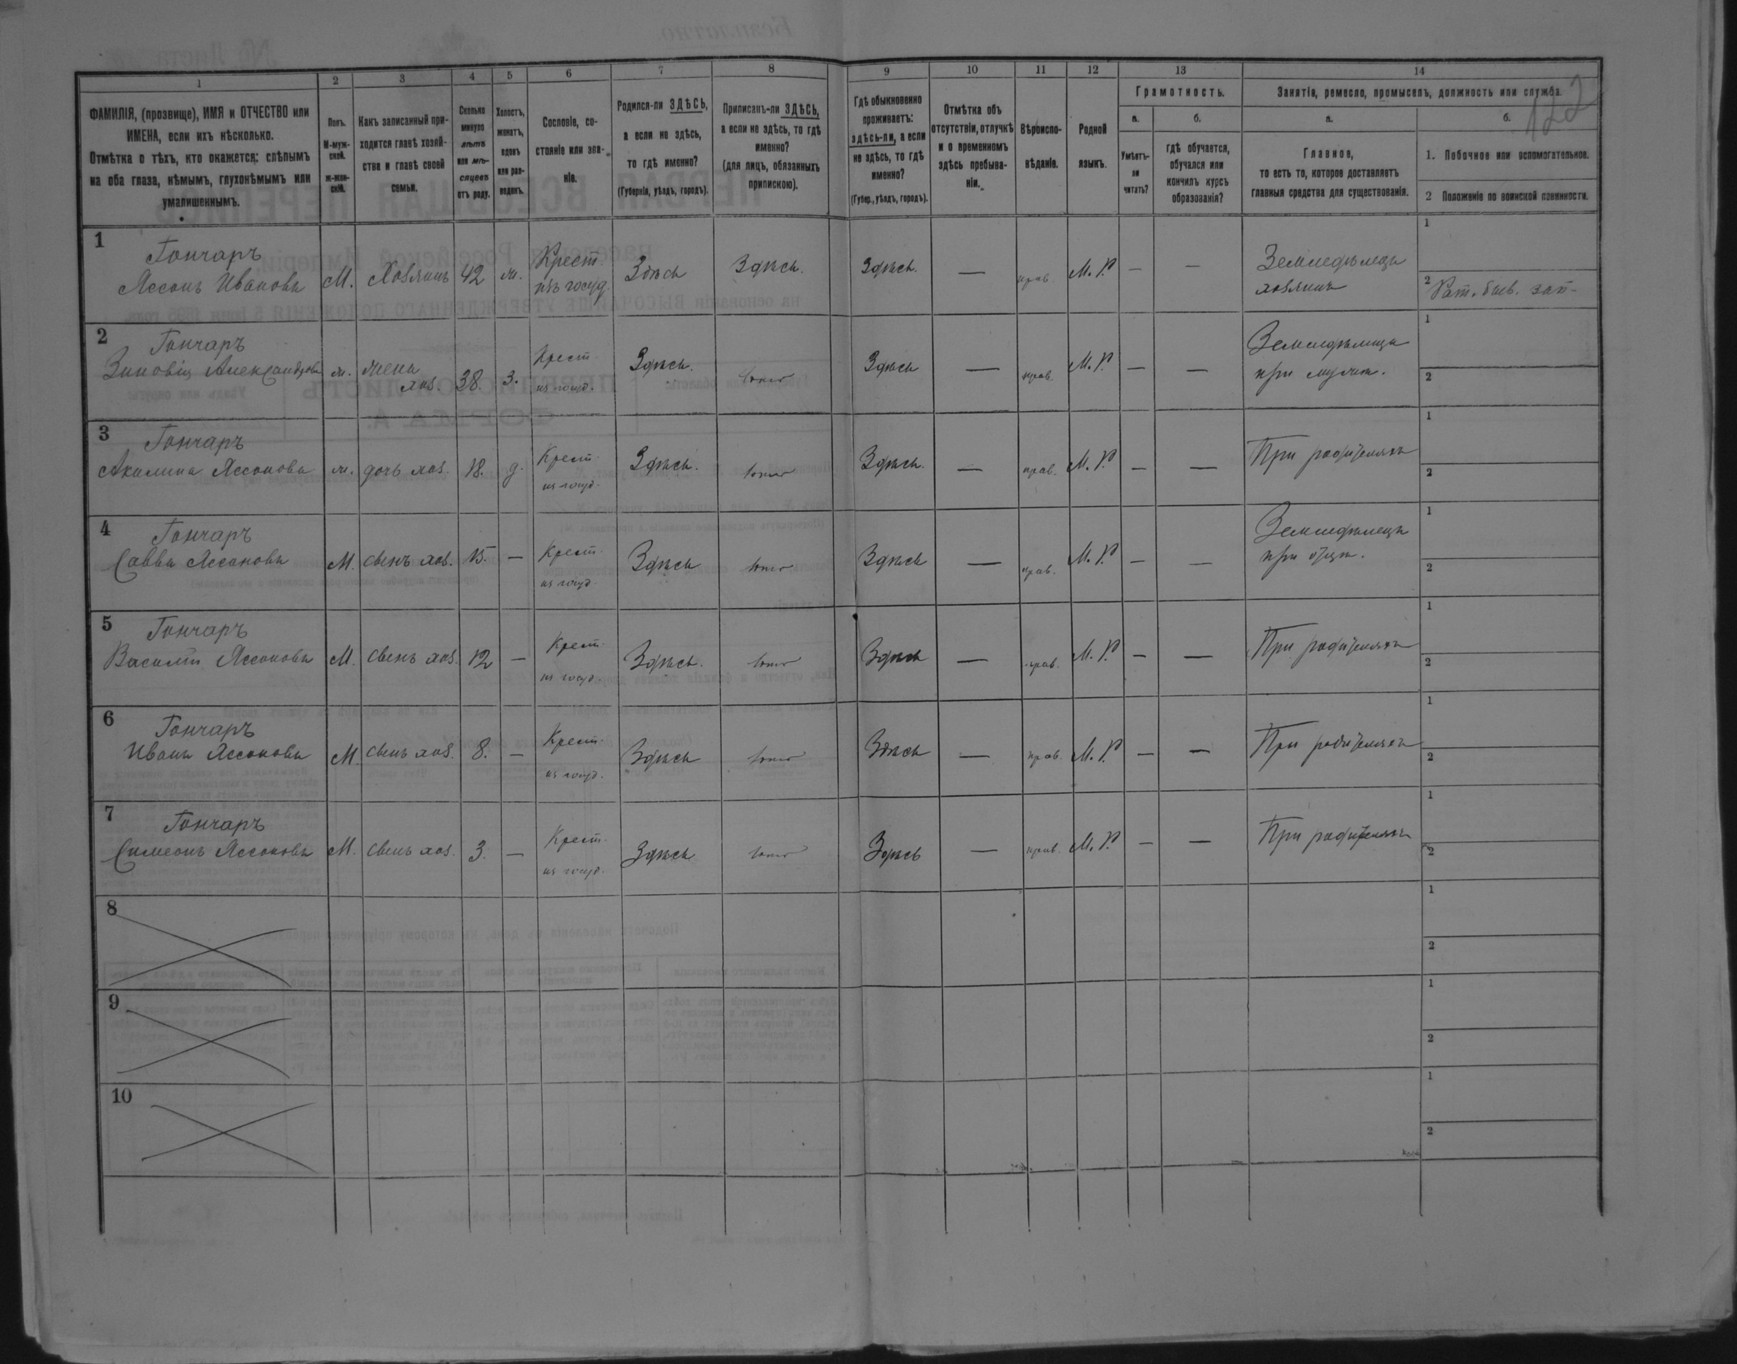 1 2 3 4 5 6 7 8 9 10 11 12 13 14
ФАМИЛІЯ, (прозвище), ИМЯ и ОТЧЕСТВО или
ИМЕНА, если ихъ нѣсколько.
Отмѣтка о тѣхъ, кто окажется: слѣпымъ
на оба глаза, нѣмымъ, глухонѣмымъ или
умалишеннымъ.
Полъ.
М-муж-
ской.
Ж-жен-
скій.
Какъ записанный при-
ходится главѣ хозяй-
ства и главѣ своей
семьи.
Сколько
минуло
лѣтъ
или мѣ-
сяцевъ
отъ роду.
Холостъ,
женатъ,
вдовъ
или раз-
веденъ.
Сословіе, со-
стояніе или зва-
ніе.
Родился-ли ЗДѢСЬ,
а если не здѣсь,
то гдѣ именно?
(Губернія, уѣздъ, городъ).
Приписанъ-ли ЗДѢСЬ,
а если не здѣсь, то гдѣ
именно?
(для лицъ, обязанныхъ
припискою).
Гдѣ обыкновенно
проживаетъ:
здѣсь-ли, а если
не здѣсь, то гдѣ
именно?
(Губер., уѣздъ, городъ).
Отмѣтка объ
отсутствіи, отлучкѣ
и о временномъ
здѣсь пребыва-
ніи.
Вѣроиспо-
вѣданіе.
Родной
языкъ.
Грамотность.
а.
Умѣетъ-
ли
читать?
б.
гдѣ обучается,
обучался или
кончилъ курсъ
образованія?
Занятіе, ремесло, промыселъ, должность или служба.
а.
Главное,
то есть то, которое доставляетъ
главныя средства для существованія.
б.
1. Побочное или вспомогательное.
2 Положеніе по воинской повинности.
122
1
Гончаръ
Яссонъ Ивановъ М. Хозяинъ 42 ж. Крест. изъ госуд. Здѣсь Здѣсь. Здѣсь. — прав. М. Р. — — Земледѣлецъ
хозяинъ
1
2 Рат. быв. зап.
2
Гончаръ
Зиновія Александрова ж. жена хоз. 38. з. Крест. из госуд. Здѣсь. тоже Здѣсь — прав. М. Р. — — Земледѣлица
при мужѣ.
1
2
3
Гончаръ
Акилина Яссонова ж. дочь хоз. 18. д. Крест. из госуд. Здѣсь. тоже Здѣсь. — прав. М. Р. — — При родителяхъ
1
2
4
Гончаръ
Савва Яссоновъ М. сынъ хоз. 15. — Крест. из госуд. Здѣсь тоже Здѣсь — прав. М. Р. — — Земледѣлецъ
при отцѣ.
1
2
5
Гончаръ
Василій Яссоновъ М. сынъ хоз. 12 — Крест. из госуд. Здѣсь. тоже Здѣсь — прав. М. Р. — — При родителяхъ
1
2
6
Гончаръ
Иванъ Яссоновъ М. сынъ хоз. 8. — Крест. из госуд. Здѣсь тоже Здѣсь — прав. М. Р. — — При родителяхъ
1
2
7
Гончаръ
Симеонъ Яссоновъ М. сынъ хоз. 3. — Крест. из госуд. Здѣсь тоже Здѣсь — прав. М. Р. — — При родителяхъ
1
2
8
1
2
9
1
2
10
1
2